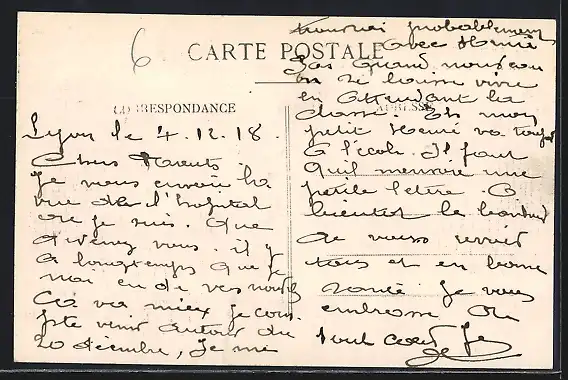 6
CARTE POSTALE
CORRESPONDANCE
ADRESSE
Lyon le 4.12.18.
Chers Parents
Je vous envoie la
vue de l'hopital
ou je suis. Que
devenez vous. il y
a longtemps que je
n'ai eu de vos nouvelles
Ca va mieux je
compte venir autour du
20 décembre, Je me
trouverai probablement
avec Henri
on se laisse vivre
en attendant la
classe. Et mon
petit Henri va
à l'école. Il faut
qu'il m'envoie une
petite lettre. A
bientot le bonheur
de vous revoir
tous et en bonne
santé. Je vous
embrasse de
tout coeur